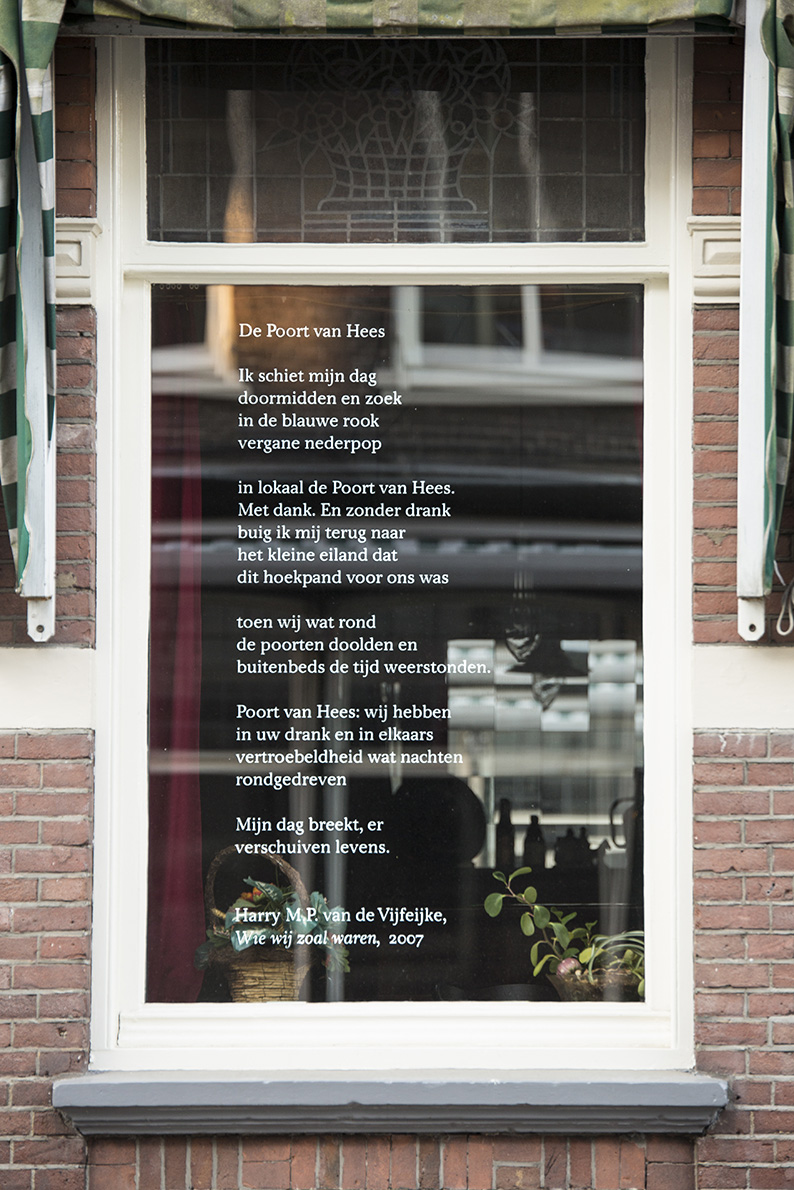 De Poort van Hees
Ik schiet mijn dag
doormidden en zoek
in de blauwe rook
vergane nederpop
in lokaal de Poort van Hees.
Met dank. En zonder drank
buig ik mij terug naar
het kleine eiland dat
dit hoekpand voor ons was
toen wij wat rond
de poorten doolden en
buitenbeds de tijd weerstonden.
Poort van Hees: wij hebben
in uw drank en in elkaars
vertroebeldheid wat nachten
rondgedreven
Mijn dag breekt, er
verschuiven levens.
Harry M.P. van de Vijfeijke,
Wie wij zoal waren, 2007